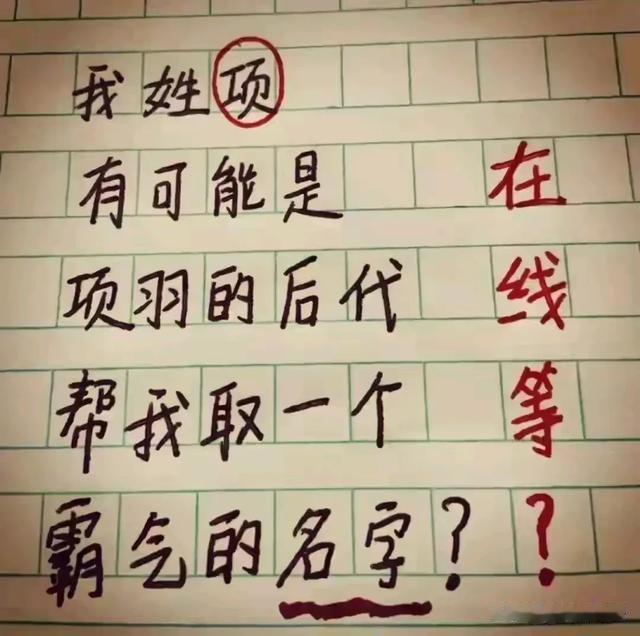 我姓项
有可能是
项羽的后代
帮我取一个
霸气的名字?
在线等?